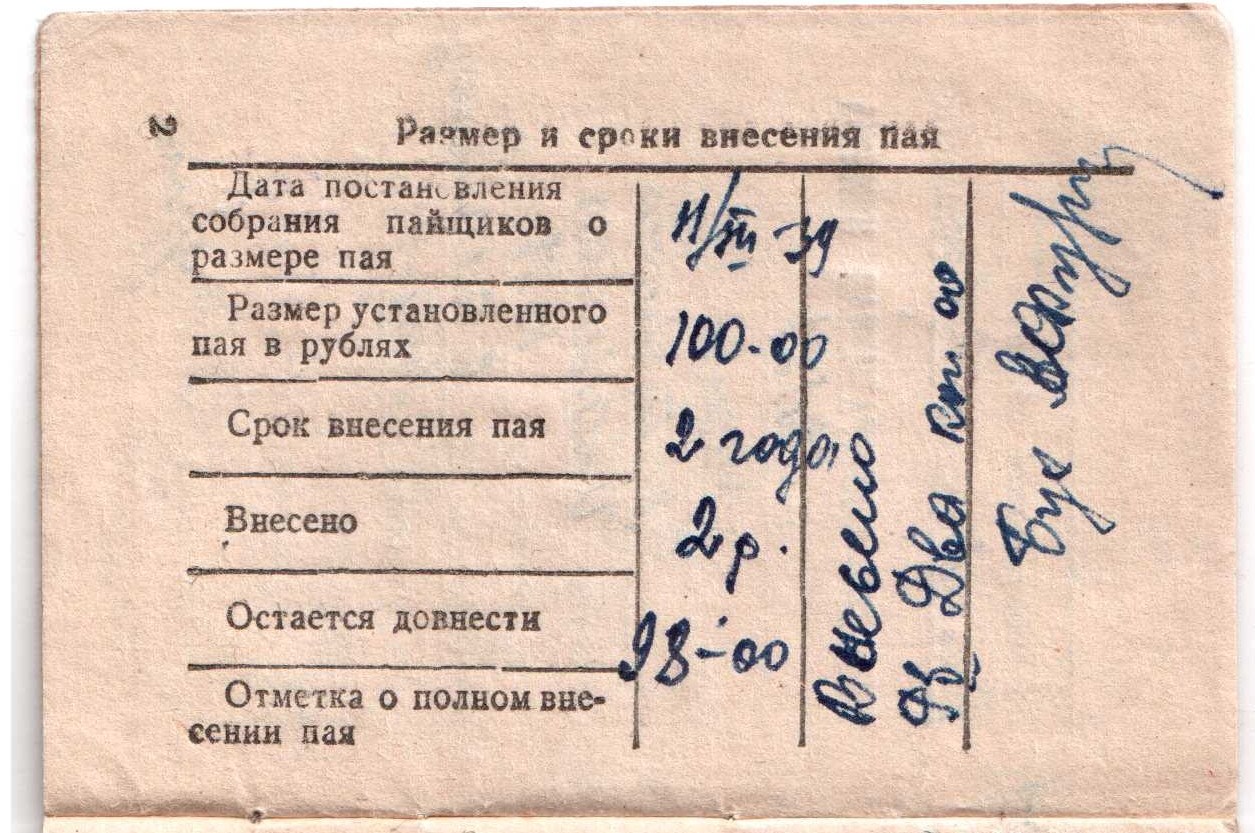 2
Размер и сроки внесения пая
Дата постановления
собрания пайщиков о
размере пая
11/III-39
Размер установленного
пая в рублях
100-00
Срок внесения пая
2 года
Внесено
2 р.
Остается довнести
98-00
Отметка о полном вне-
сении пая
Внесено
Два 00
Бух